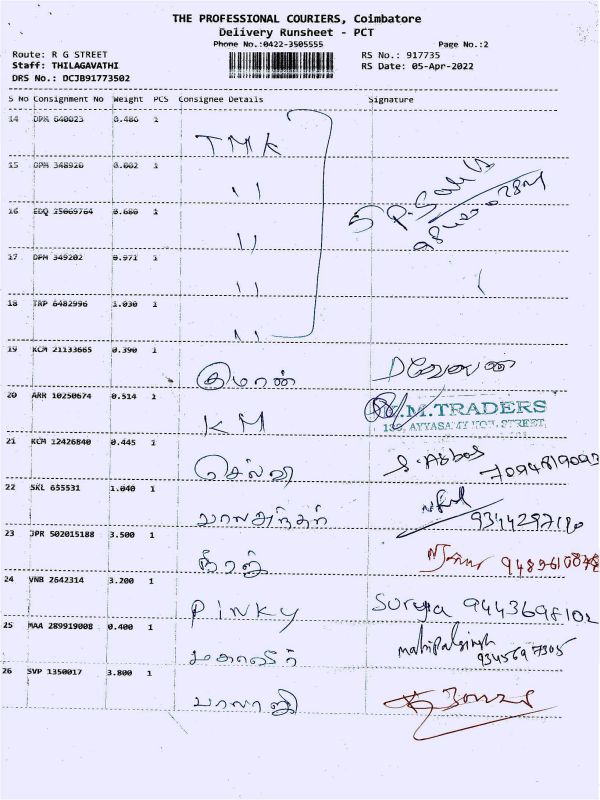 THE PROFESSIONAL COURIERS, Coimbatore
Delivery Runsheet - PCT
Phone No.:0422-3505555 Page No.:2
Route: R G STREET RS No.: 917735
Staff: THILAGAVATHI RS Date: 05-Apr-2022
DRS No.: DCJB91773502
S No Consignment No Weight PCS Consignee Details Signature
14 DPM 640023 0.486 1
TMK
15 OPM 348920 0.002 1
11
5 P.
16 EDQ 25069764 0.680 1
11
17 DPM 349202 0.971 1
11
18 TRP 6482996 1.030 1
11
19 KCM 21133665 0.390 1
குமரன்
20 ARR 10250674 0.514 1
KM
K.M.TRADERS
139, AYYASAMY STREET,
21 KCM 12426840 0.445 1
செல்வி S. Abbas 7094819093
22 SKL 655531 1.040 1
பாலசுந்தர்
23 JPR 502015188 3.500 1
நீராஜ்
24 VNB 2642314 3.200 1
PINKY Surya 9443698102
25 MAA 289919008 0.400 1
மகாவீர் mahipalsingh
9345697305
26 SVP 1350017 3.800 1
பாலாஜி